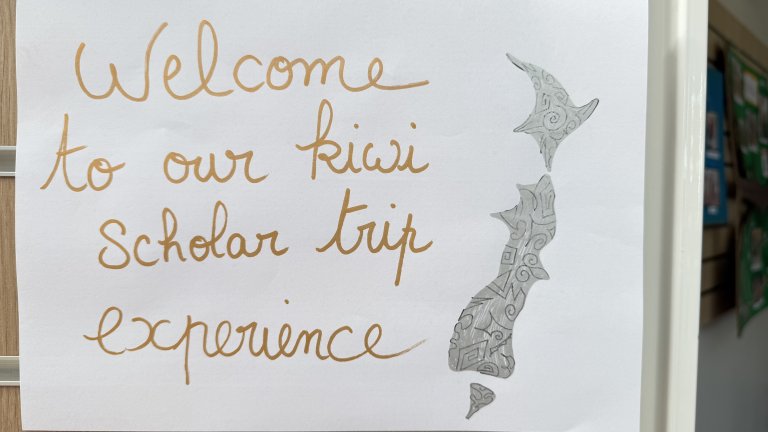 Welcome
to our kiwi
Scholar trip
experience